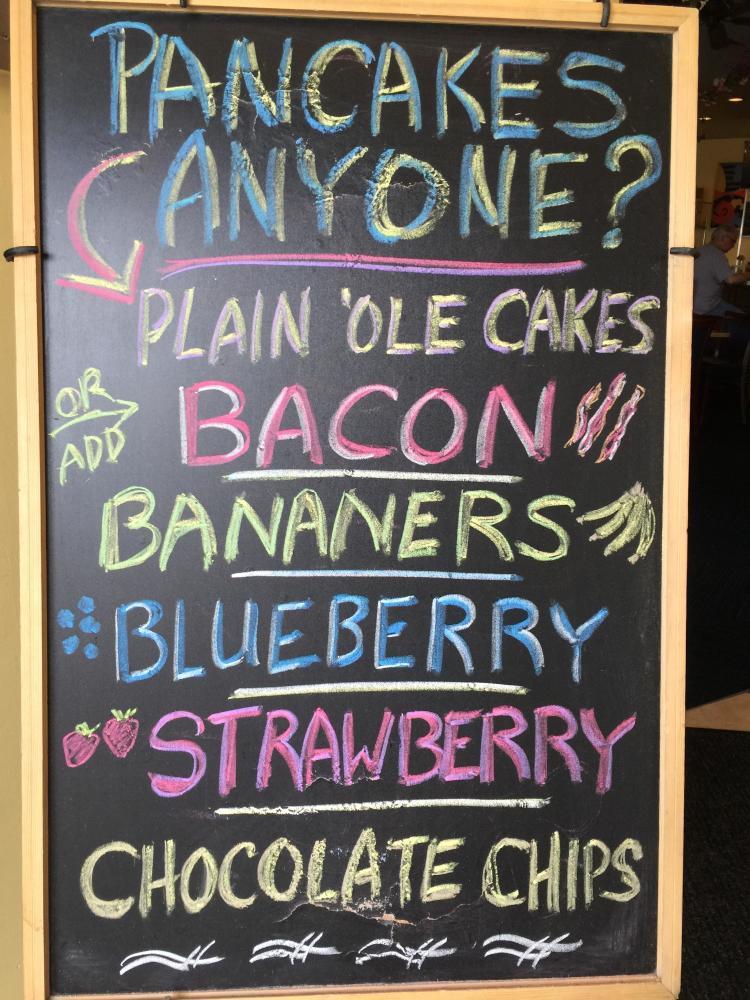 PANCAKES
ANYONE?
PLAIN 'OLE CAKES
OR
ADD
BACON
BANANERS
BLUEBERRY
STRAWBERRY
CHOCOLATE CHIPS